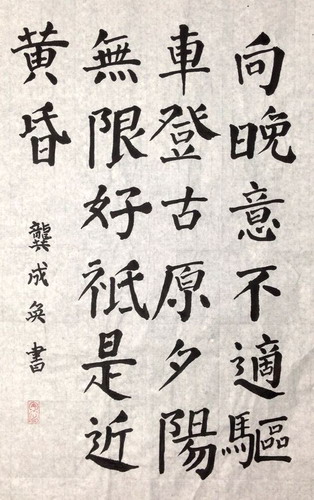 向晚意不適驅
車登古原夕陽
無限好祗是近
黃昏
龔成奐書